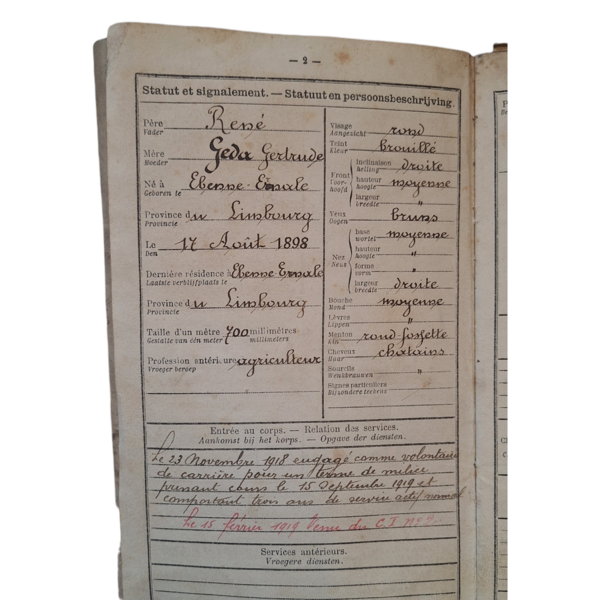 — 2 —
Statut et signalement. — Statuut en persoonsbeschrijving.
Père René
Vader
Mère Geda Gertrude
Moeder
Né à Ebenne-Emale
Geboren te
Province du Limbourg
Provincie
Le 17 Août 1898
Den
Dernière résidence à Ebenne Emale
Laatste verblijfplaats te
Province du Limbourg
Provincie
Taille d'un mètre 700 millimètres
Gestalte van één meter millimeters
Profession antérieure agriculteur
Vroeger beroep
Visage rond
Aangezicht
Teint brouillé
Kleur
Front inclinaison droite
Voorhoofd helling
hauteur moyenne
hoogte
largeur "
breedte
Yeux bruns
Oogen
Nez base moyenne
Neus wortel
hauteur "
hoogte
forme "
vorm
largeur droite
breedte
Bouche moyenne
Mond
Lèvres "
Lippen
Menton rond-fossette
Kin
Cheveux chatains
Haar
Sourcils "
Wenkbrauwen
Signes particuliers
Bijzondere teekens
Entrée au corps. — Relation des services.
Aankomst bij het korps. — Opgave der diensten.
Le 23 Novembre 1918 engagé comme volontaire
de carrière pour un terme de milice
prenant cours le 15 Septembre 1919 et
comportant trois ans de service actif normal
Le 15 février 1919 Venu du C.I. No
Services antérieurs.
Vroegere diensten.